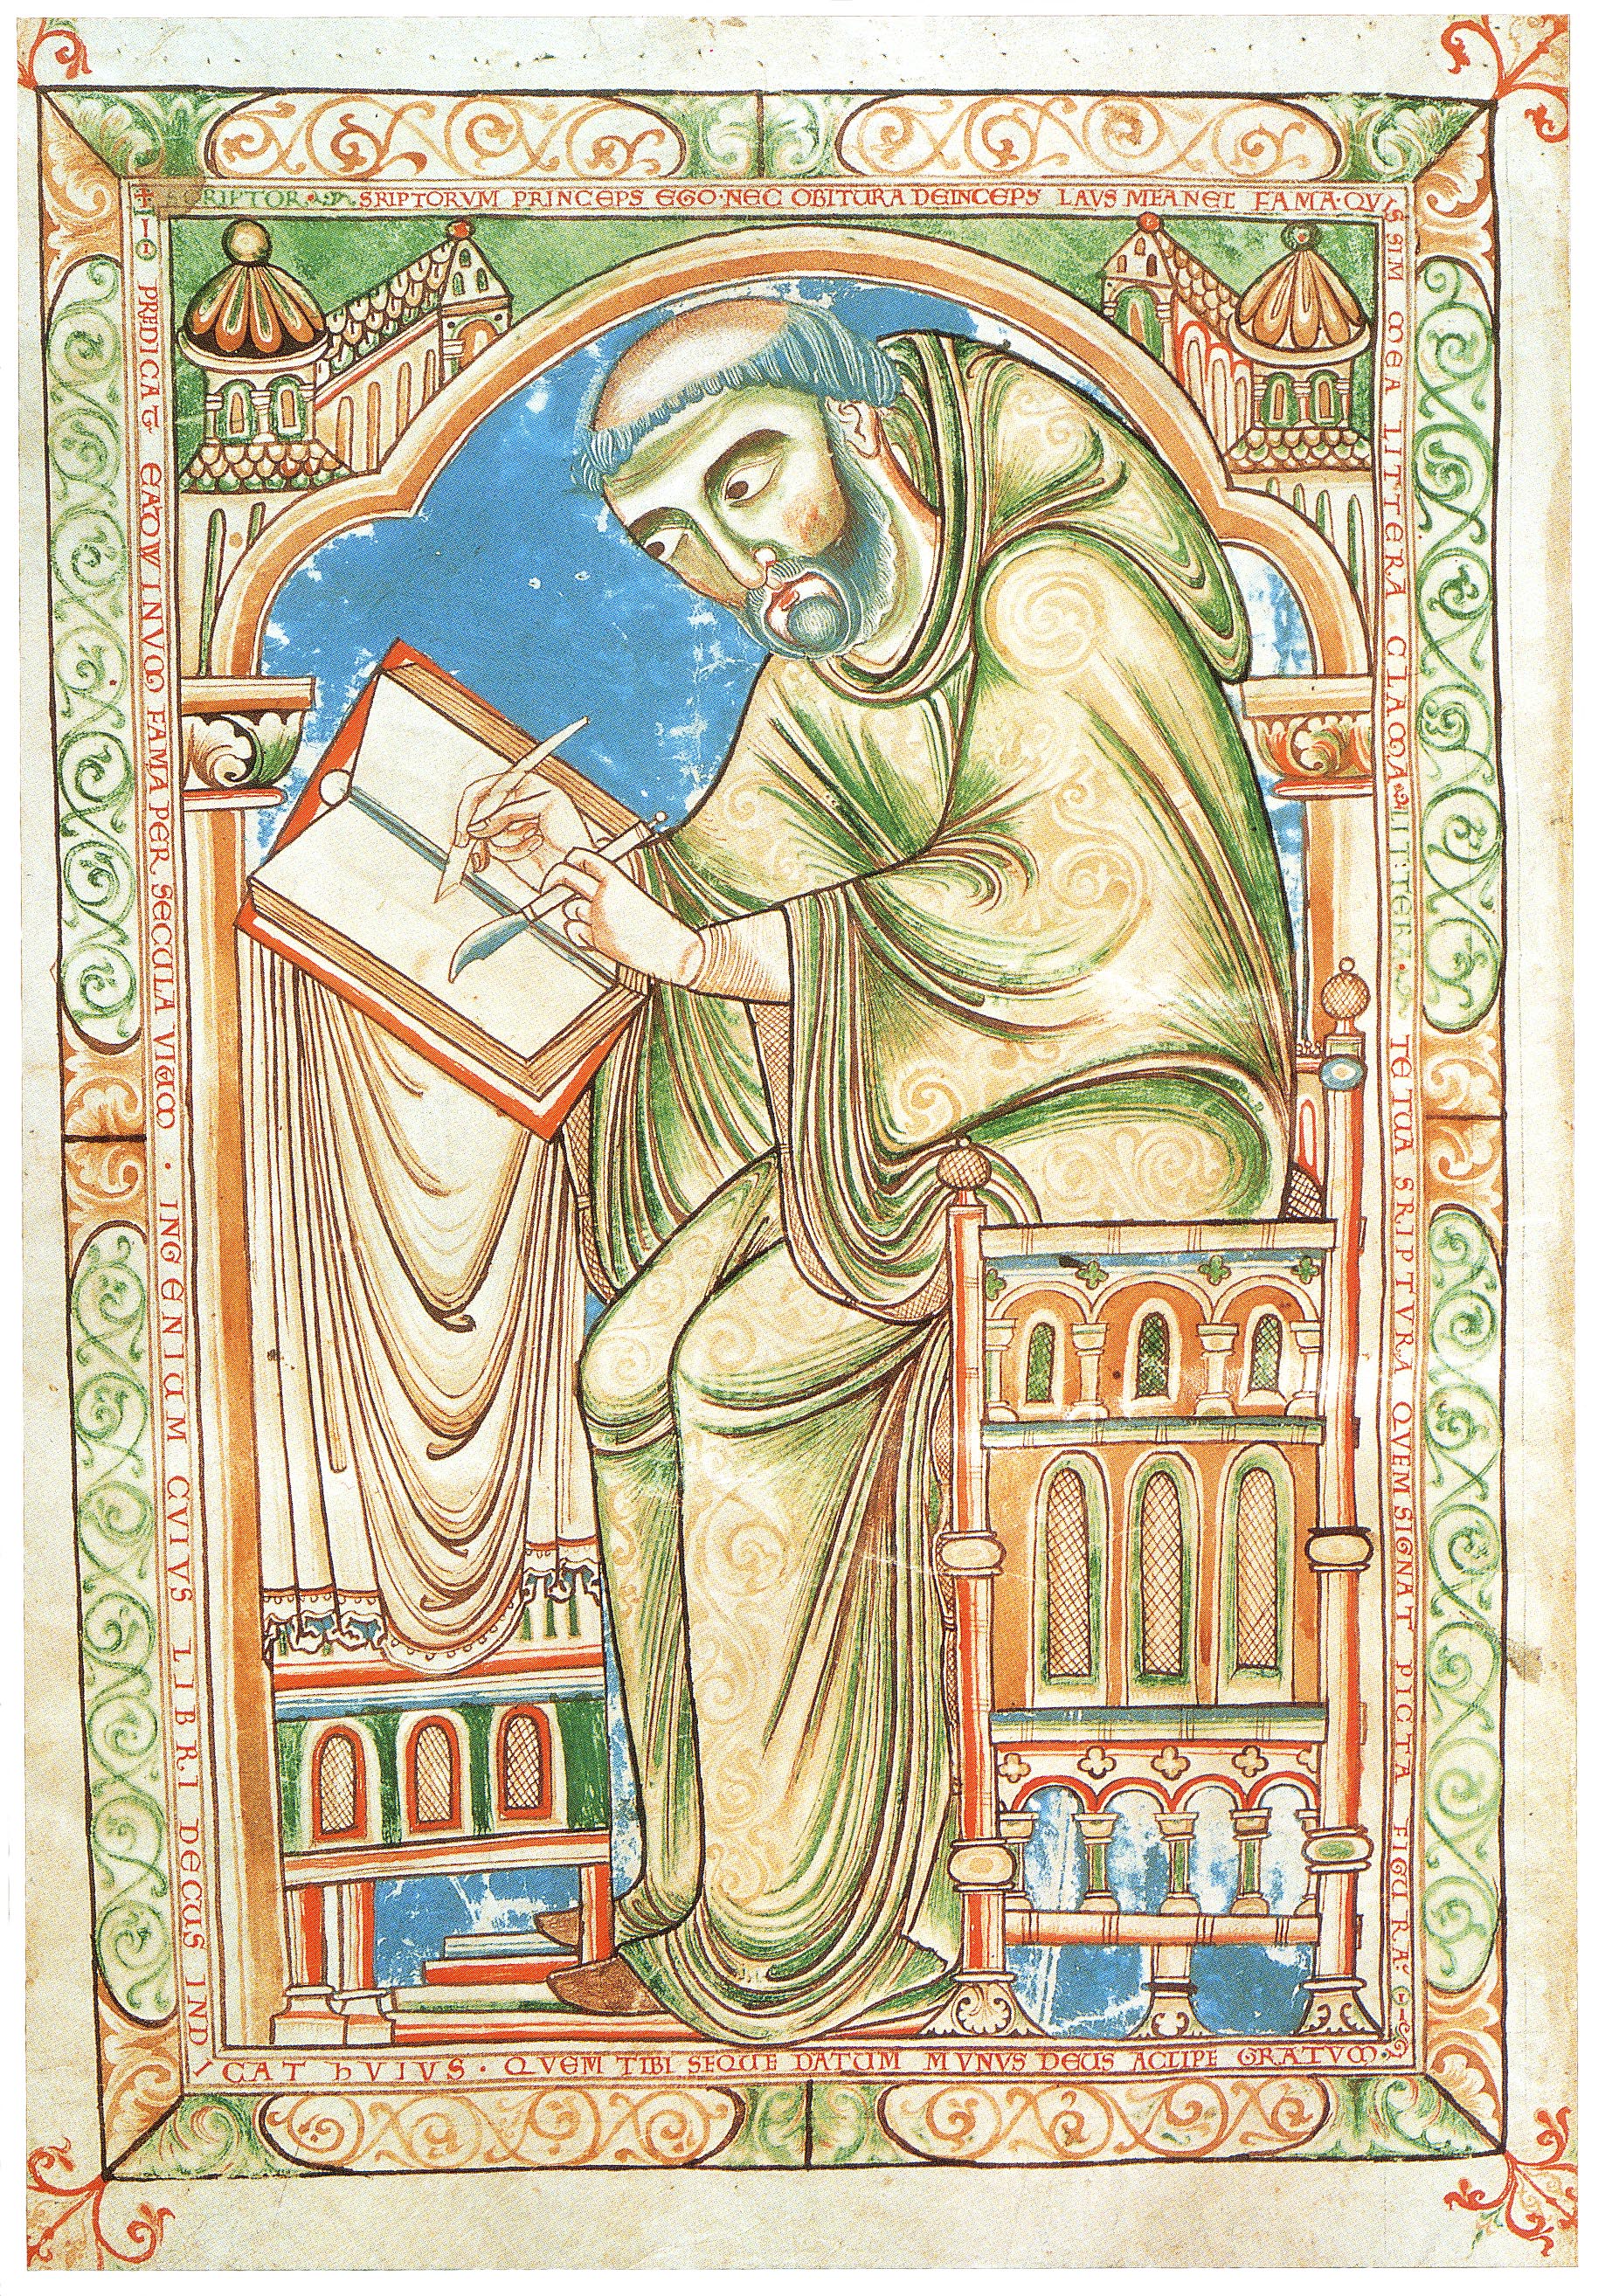 SCRIPTOR · SRIPTORVM PRINCEPS EGO · NEC OBITURA DEINCEPS LAVS MEA NEC FAMA · QVIS
SIM MEA LITTERA CLAMA · LITTERA · TE TUA SRIPTVRA QVEM SIGNAT PICTA FIGURA ·
PREDICAT EADWINVM FAMA PER SECULA VIVUM · INGENIUM CVIVS LIBRI DECUS IND
ICAT hVIVS · QVEM TIBI SEQUE DATUM MVNVS DEUS ACCIPE GRATVM ·